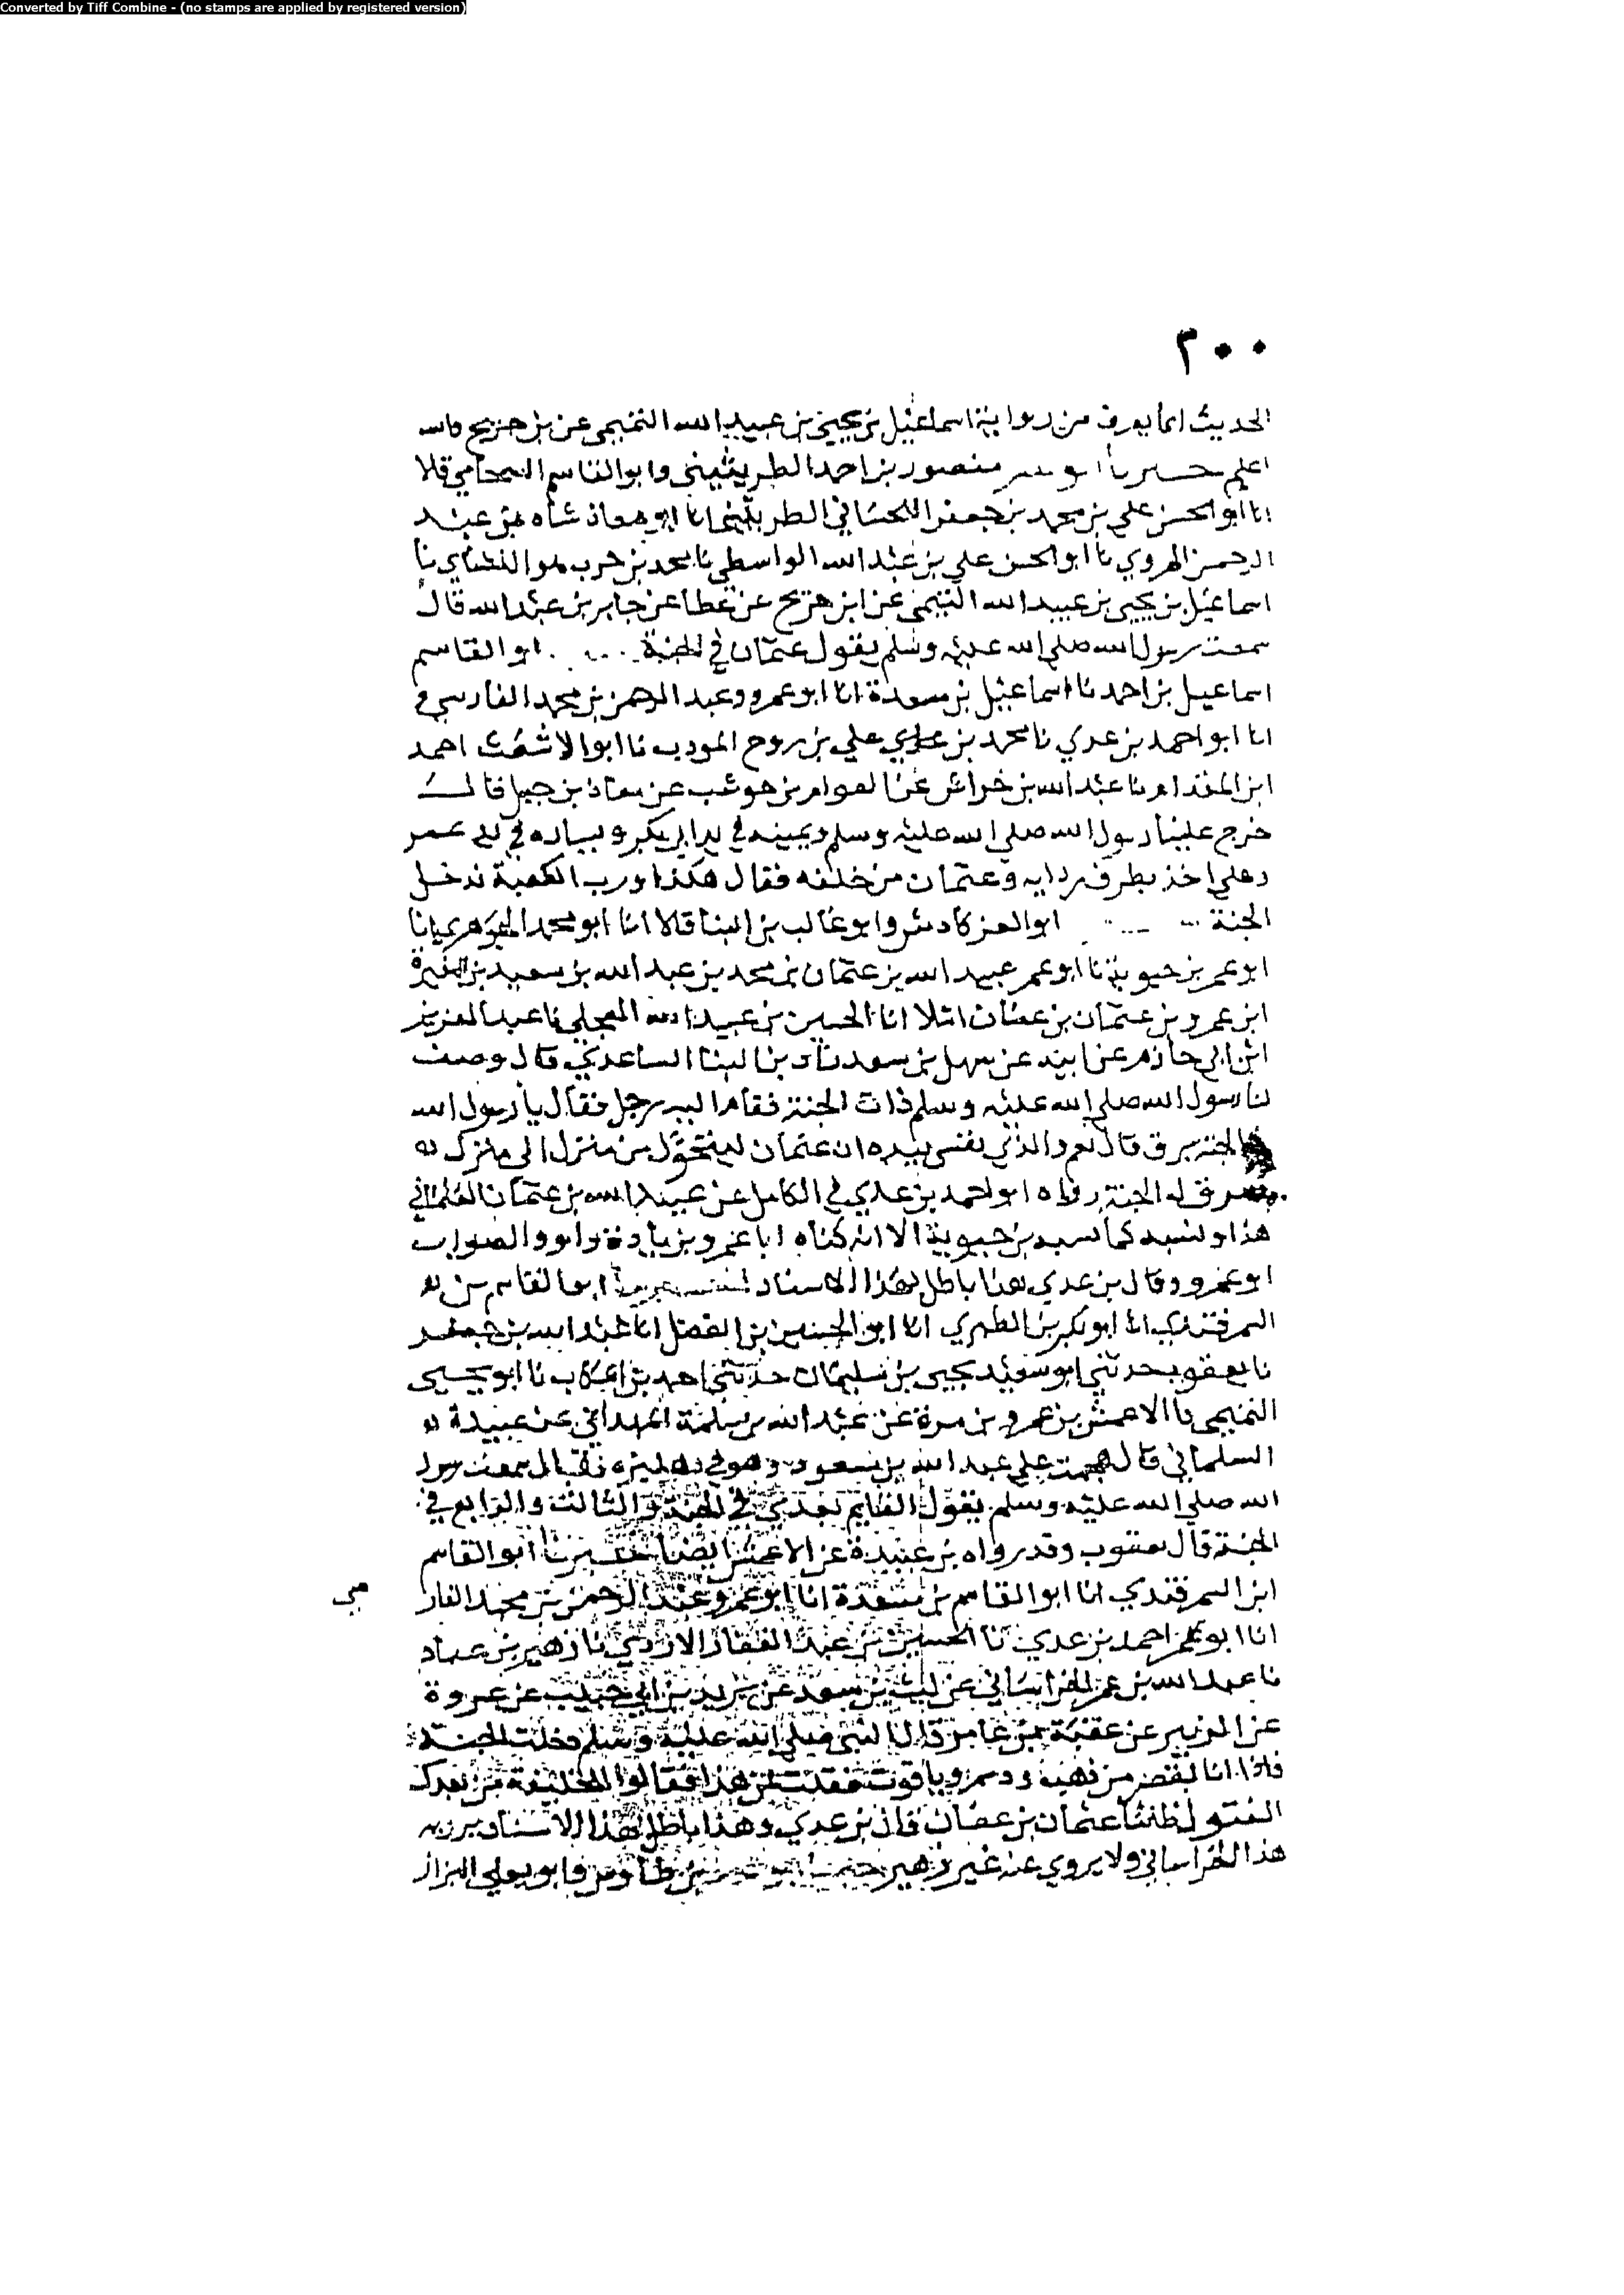 Converted by Tiff Combine - (no stamps are applied by registered version)
٣٠٠
الحديث انما يعرف من رواية اسماعيل بن يحيى بن عبيد الله التيمي عن بن جريج والله
اعلم منصور بن احمد الطريثيثي وابو القاسم الشحامي قالا
انا ابو الحسن علي بن محمد بن جعفر اللحساني الطريثيثي انا ابو معاذ شاه بن عبد
الرحمن الهروي نا ابو الحسن علي بن عبد الله الواسطي نا محمد بن حرب هو النشاي نا
اسماعيل بن يحيى بن عبيد الله التيمي عن ابن جريج عن عطا عن جابر بن عبد الله قال
سمعت رسول الله صلى الله عليه وسلم يقول عثمان في الجنة ابو القاسم
اسماعيل بن احمد نا اسماعيل بن مسعدة انا ابو عمرو وعبد الرحمن بن محمد الفارسي
انا ابو احمد بن عدي نا محمد بن علي بن روح المودب نا ابو الاشعث احمد
ابن المقدام نا عبد الله بن خراش عن العوام بن حوشب عن معاذ بن جبل قال
خرج علينا رسول الله صلى الله عليه وسلم ويمينه في يد ابي بكر ويساره في يد عمر
وعلي اخذ بطرف ردايه وعثمان من خلفه فقال هكذا ورب الكعبة ندخل
الجنة ابو العز كادش وابو غالب بن البنا قالا انا ابو محمد الجوهري انا
ابو عمر بن حيوية نا ابو عمر عبيد الله بن عثمان بن محمد بن عبد الله بن سعيد بن المغيرة
ابن عمرو بن عثمان بن عفان املا انا الحسين بن عبيد الله العجلي نا عبد العزيز
ابن ابي حازم عن ابيه عن سهل بن سعد الساعدي قال وصف
لنا رسول الله صلى الله عليه وسلم ذات الجنة فقام اليه رجل فقال يا رسول الله
الجنة برق قال نعم والذي نفسي بيده ان عثمان ليتحول من منزل الى منزل
فتبرق له الجنة رواه ابو احمد بن عدي في الكامل عن عبيد الله بن عثمان العثماني
هذا ونسبه كما نسبه بن حيوية الا انه كناه ابا عمرو بزيادة واو والصواب
ابو عمرو وقال بن عدي هذا باطل بهذا الاسناد ابو القاسم بن
السمرقندي انا ابو بكر بن الطبري انا ابو الحسين بن الفضل انا عبد الله بن جعفر
نا يعقوب حدثني ابو سعيد يحيى بن سليمان حدثني احمد بن اشكاب نا ابو يحيى
التميمي نا الاعمش بن عمرو بن مرة عن عبد الله بن سلمة الهمداني عن عبيدة
السلماني قال هجمت على عبد الله بن مسعود وهو في دهليزه فقال سمعت رسول
الله صلى الله عليه وسلم يقول القايم بعدي في الجنة والثالث والرابع في
الجنة قال يعقوب وقد رواه بن عبيدة عن الاعمش ايضا اخبرنا ابو القاسم
ابن السمرقندي انا ابو القاسم بن مسعدة انا ابو عمرو عبد الرحمن بن محمد الفار
سي
انا ابو احمد بن عدي نا الحسين بن عبد الغفار الازدي نا زهير بن عباد
نا عبد الله بن عمر الخراساني عن ليث بن سعد عن يزيد بن ابي حبيب عن عروة
عن الزبير عن عقبة بن عامر قال النبي صلى الله عليه وسلم دخلت الجنة
فاذا انا بقصر من ذهب ودر وياقوت فقلت لمن هذا فقالوا للخليفة من بعدك
المقتول ظلما عثمان بن عفان قال بن عدي وهذا باطل بهذا الاسناد
هذا الخراساني ولا يروي عنه غير زهير ابو يعلى البزاز